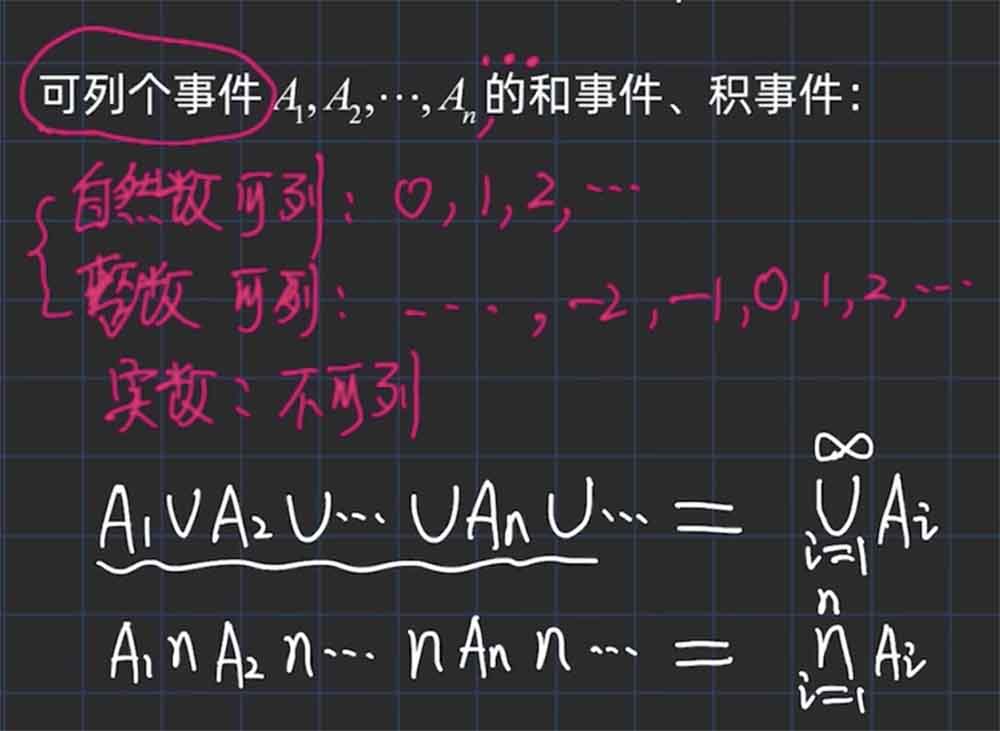 可列个事件 A₁, A₂, ⋯, Aₙ, ⋯ 的和事件、积事件：
自然数可列：0, 1, 2, ⋯
整数可列：⋯⋯, -2, -1, 0, 1, 2, ⋯
实数：不可列
A₁∪A₂∪⋯∪Aₙ∪⋯ = ∞∪i=1 Aᵢ
A₁∩A₂∩⋯∩Aₙ∩⋯ = n∩i=1 Aᵢ